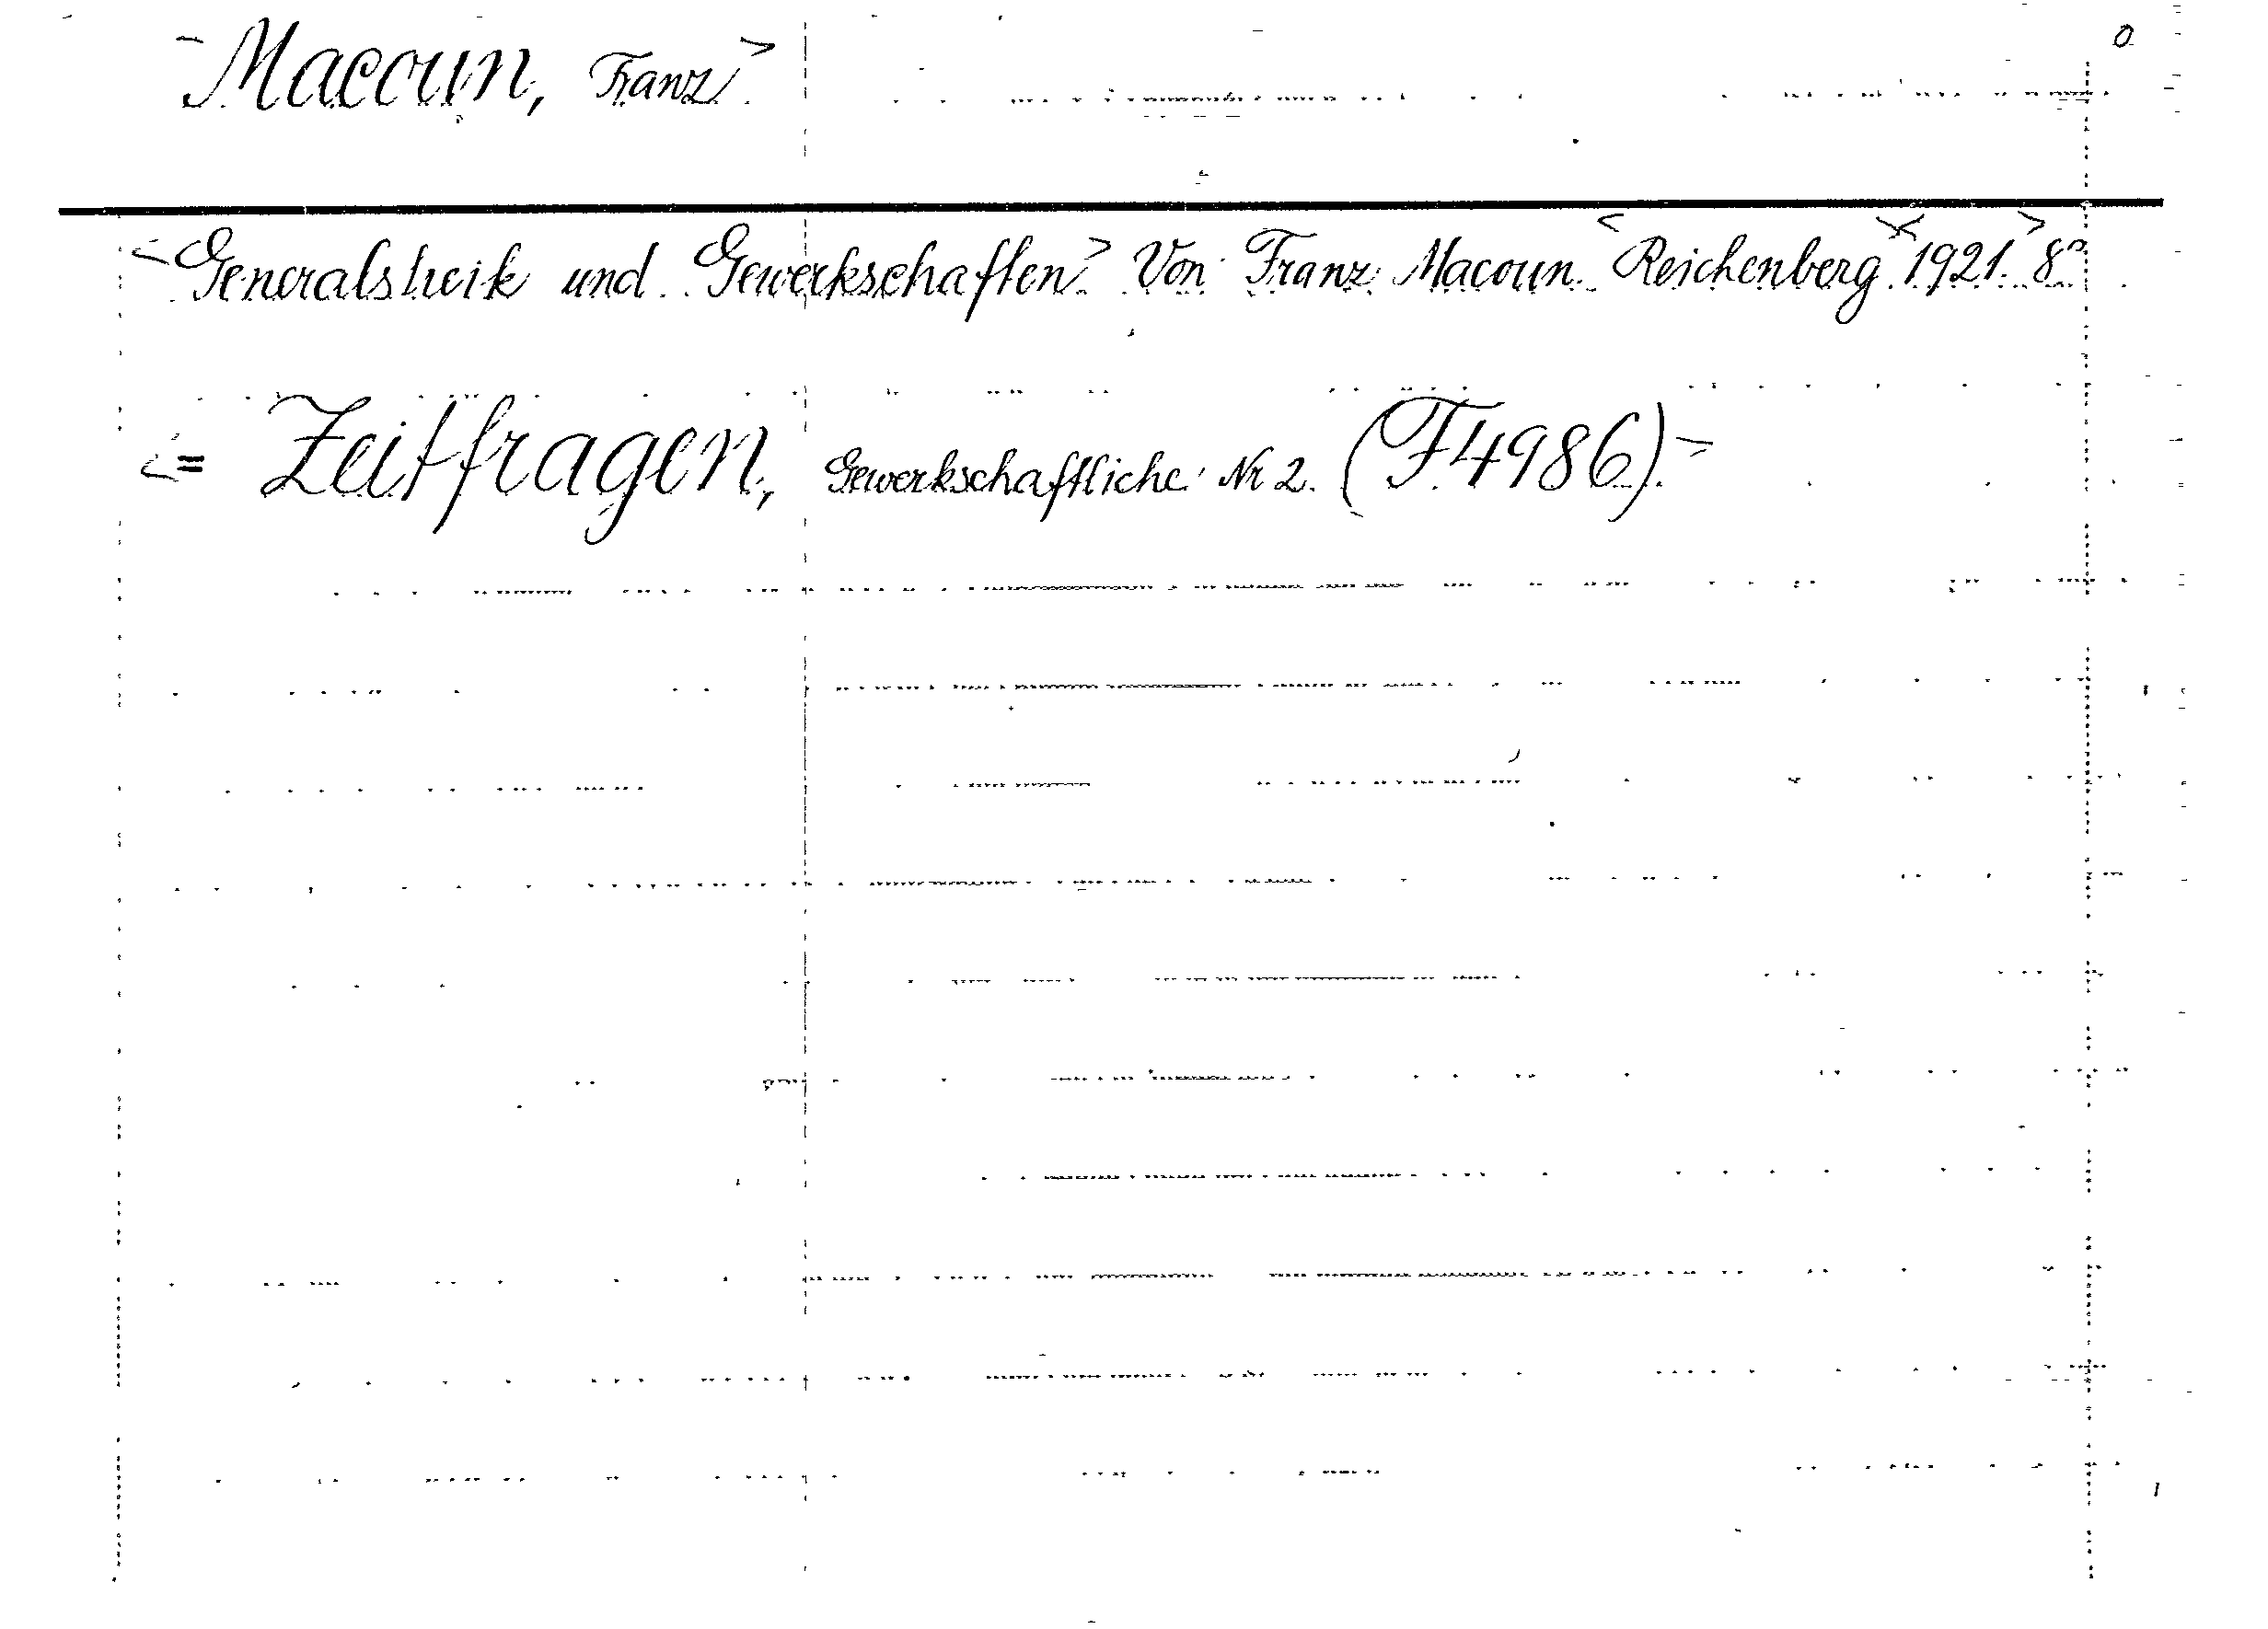 <Macoun, Franz>
0
<Generalstreik und Gewerkschaften> Von Franz Macoun. <Reichenberg × 1921.> 8°
<= Zeitfragen, Gewerkschaftliche Nr 2. (F4986).>